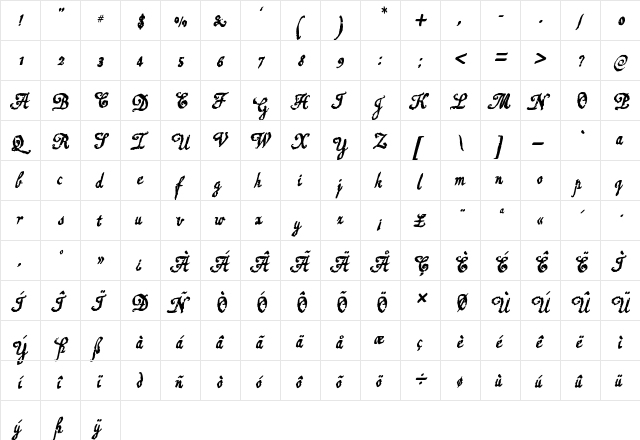 ! " # $ % & ' ( ) * + , - . / 0
1 2 3 4 5 6 7 8 9 : ; < = > ? @
A B C D E F G H I J K L M N O P
Q R S T U V W X Y Z [ \ ] _ ` a
b c d e f g h i j k l m n o p q
r s t u v w x y z ¡ £ ¨ ª « ¬ ´
¸ º » ¿ À Á Â Ã Ä Å Ç È É Ê Ë Ì
Í Î Ï Ð Ñ Ò Ó Ô Õ Ö × Ø Ù Ú Û Ü
Ý Þ ß à á â ã ä å æ ç è é ê ë ì
í î ï ð ñ ò ó ô õ ö ÷ ø ù ú û ü
ý þ ÿ